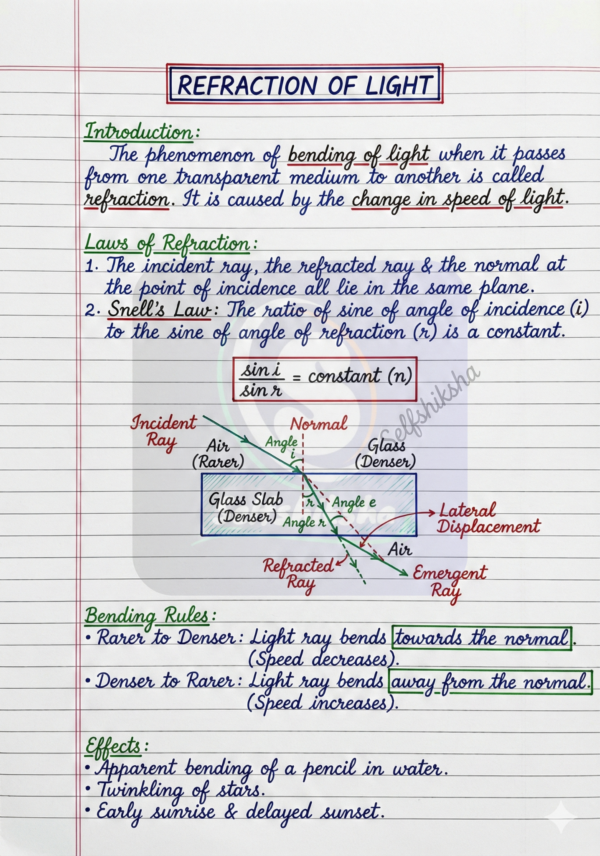 REFRACTION OF LIGHT
Introduction:
The phenomenon of bending of light when it passes
from one transparent medium to another is called
refraction. It is caused by the change in speed of light.
Laws of Refraction:
1. The incident ray, the refracted ray & the normal at
the point of incidence all lie in the same plane.
2. Snell's Law: The ratio of sine of angle of incidence (i)
to the sine of angle of refraction (r) is a constant.
sin i
sin r
= constant (n)
Selfshiksha
Incident
Ray
Normal
Air
(Rarer)
Angle
i
Glass
(Denser)
Glass Slab
(Denser)
r
Angle e
Angle r
Lateral
Displacement
Air
Refracted
Ray
Emergent
Ray
Bending Rules:
• Rarer to Denser: Light ray bends towards the normal.
(Speed decreases).
• Denser to Rarer: Light ray bends away from the normal.
(Speed increases).
Effects:
• Apparent bending of a pencil in water.
• Twinkling of stars.
• Early sunrise & delayed sunset.